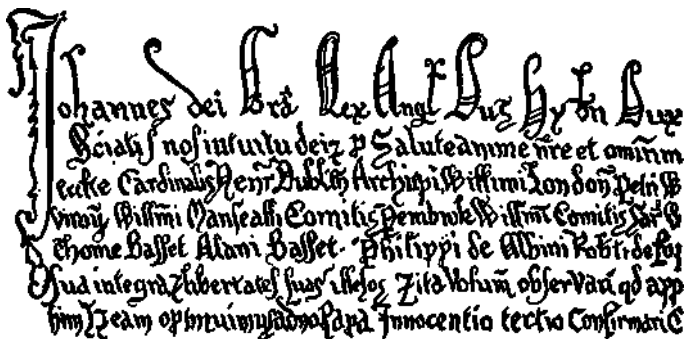 Johannes dei Gra Rex Angl Dns Hybn Dux
Sciatis nos intuitu dei z p Salute anime nre et omnium
eccle Cardinalis Henr Dublin Archiepi Willimi London Petri W
Willmi Marscalli Comitis Pembroke Willmi Comitis Sar W
Thome Basset Alani Basset Philippi de Albini Robti de Rop
sua integra z libertates suas illesas z ita volum observari qd app
eam optinuimus a dno Papa Innocentio tertio Confirmari